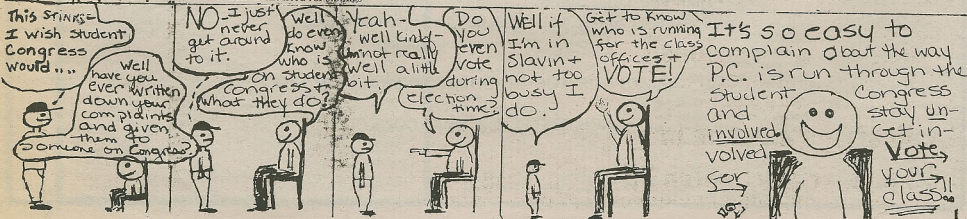 This STINKS-
I wish Student
Congress
would....
Well
have you
ever written
down your
complaints
and given
them to
someone on Congress?
NO-I just
never
get around
to it.
Well
do even
know
who is
on student
Congress +
what they do?
Yeah-
well kinda-
I'm not really
well a little
bit.
Do
you
even
vote
during
election
time?
Well if
I'm in
Slavin +
not too
busy I
do.
Get to know
who is running
for the class
offices +
VOTE!
It's so easy to
complain about the way
P.C. is run through the
Student Congress
and stay un-
involved. Get in-
volved Vote,
for your
class!!